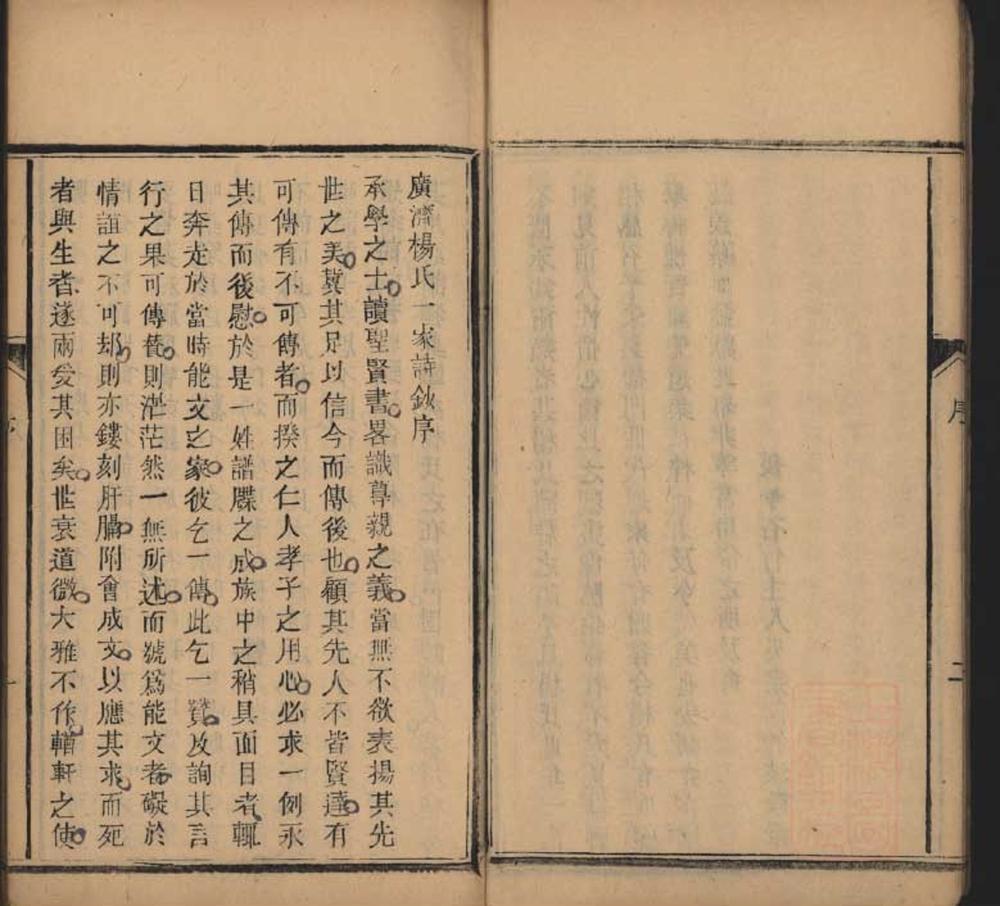 序
二
廣濟楊氏一家詩鈔序
承學之士讀聖賢書畧識尊親之義當無不欲表揚其先
世之美冀其足以信今而傳後也顧其先人不皆賢達有
可傳有不可傳者而揆之仁人孝子之用心必求一例永
其傳而後慰於是一姓譜牒之成族中之稍具面目者輒
日奔走於當時能文之家彼乞一傳此乞一贊及詢其言
行之果可傳贊則茫茫然一無所述而號爲能文者礙於
情誼之不可却則亦鏤刻肝腸附會成文以應其求而死
者與生者遂兩受其困矣世衰道微大雅不作輶軒之使
一